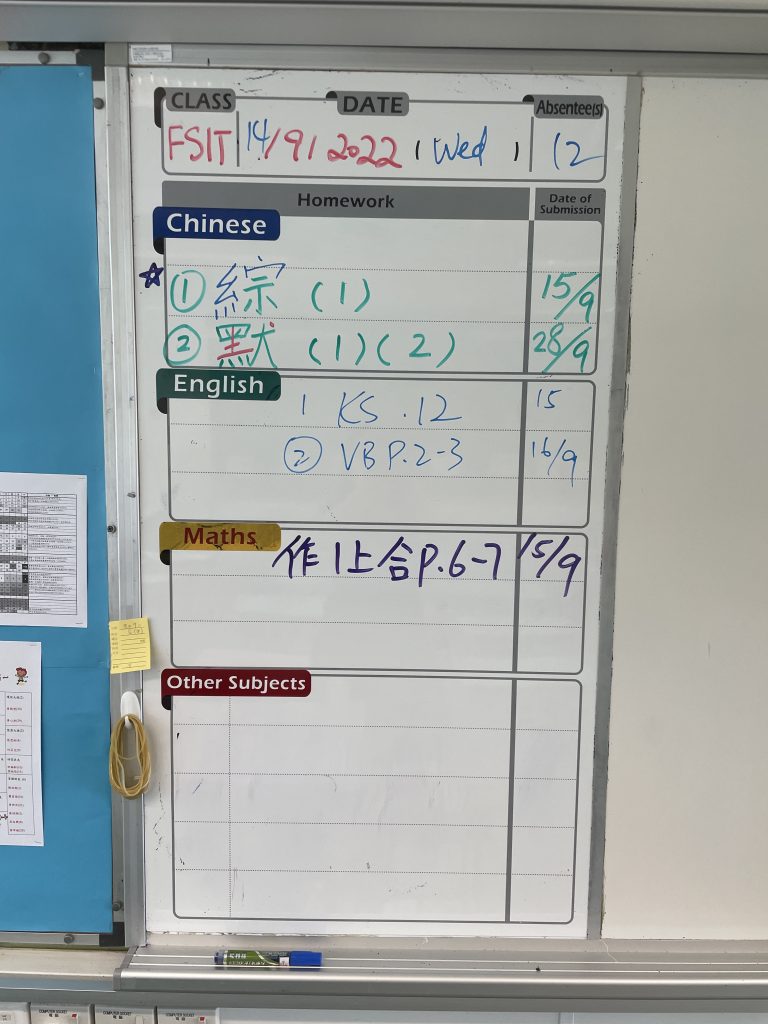 CLASS DATE Absentee(s)
FSIT 14/9/2022 (Wed) 12
Homework Date of Submission
Chinese
☆ ① 綜 (1) 15/9
② 默 (1)(2) 28/9
English
1 KS .12 15
② VB P.2-3 16/9
Maths
作1上合P.6-7 15/9
Other Subjects
COMPUTER SOCKET
COMPUTER SOCKET
COMPUTER SOCKET